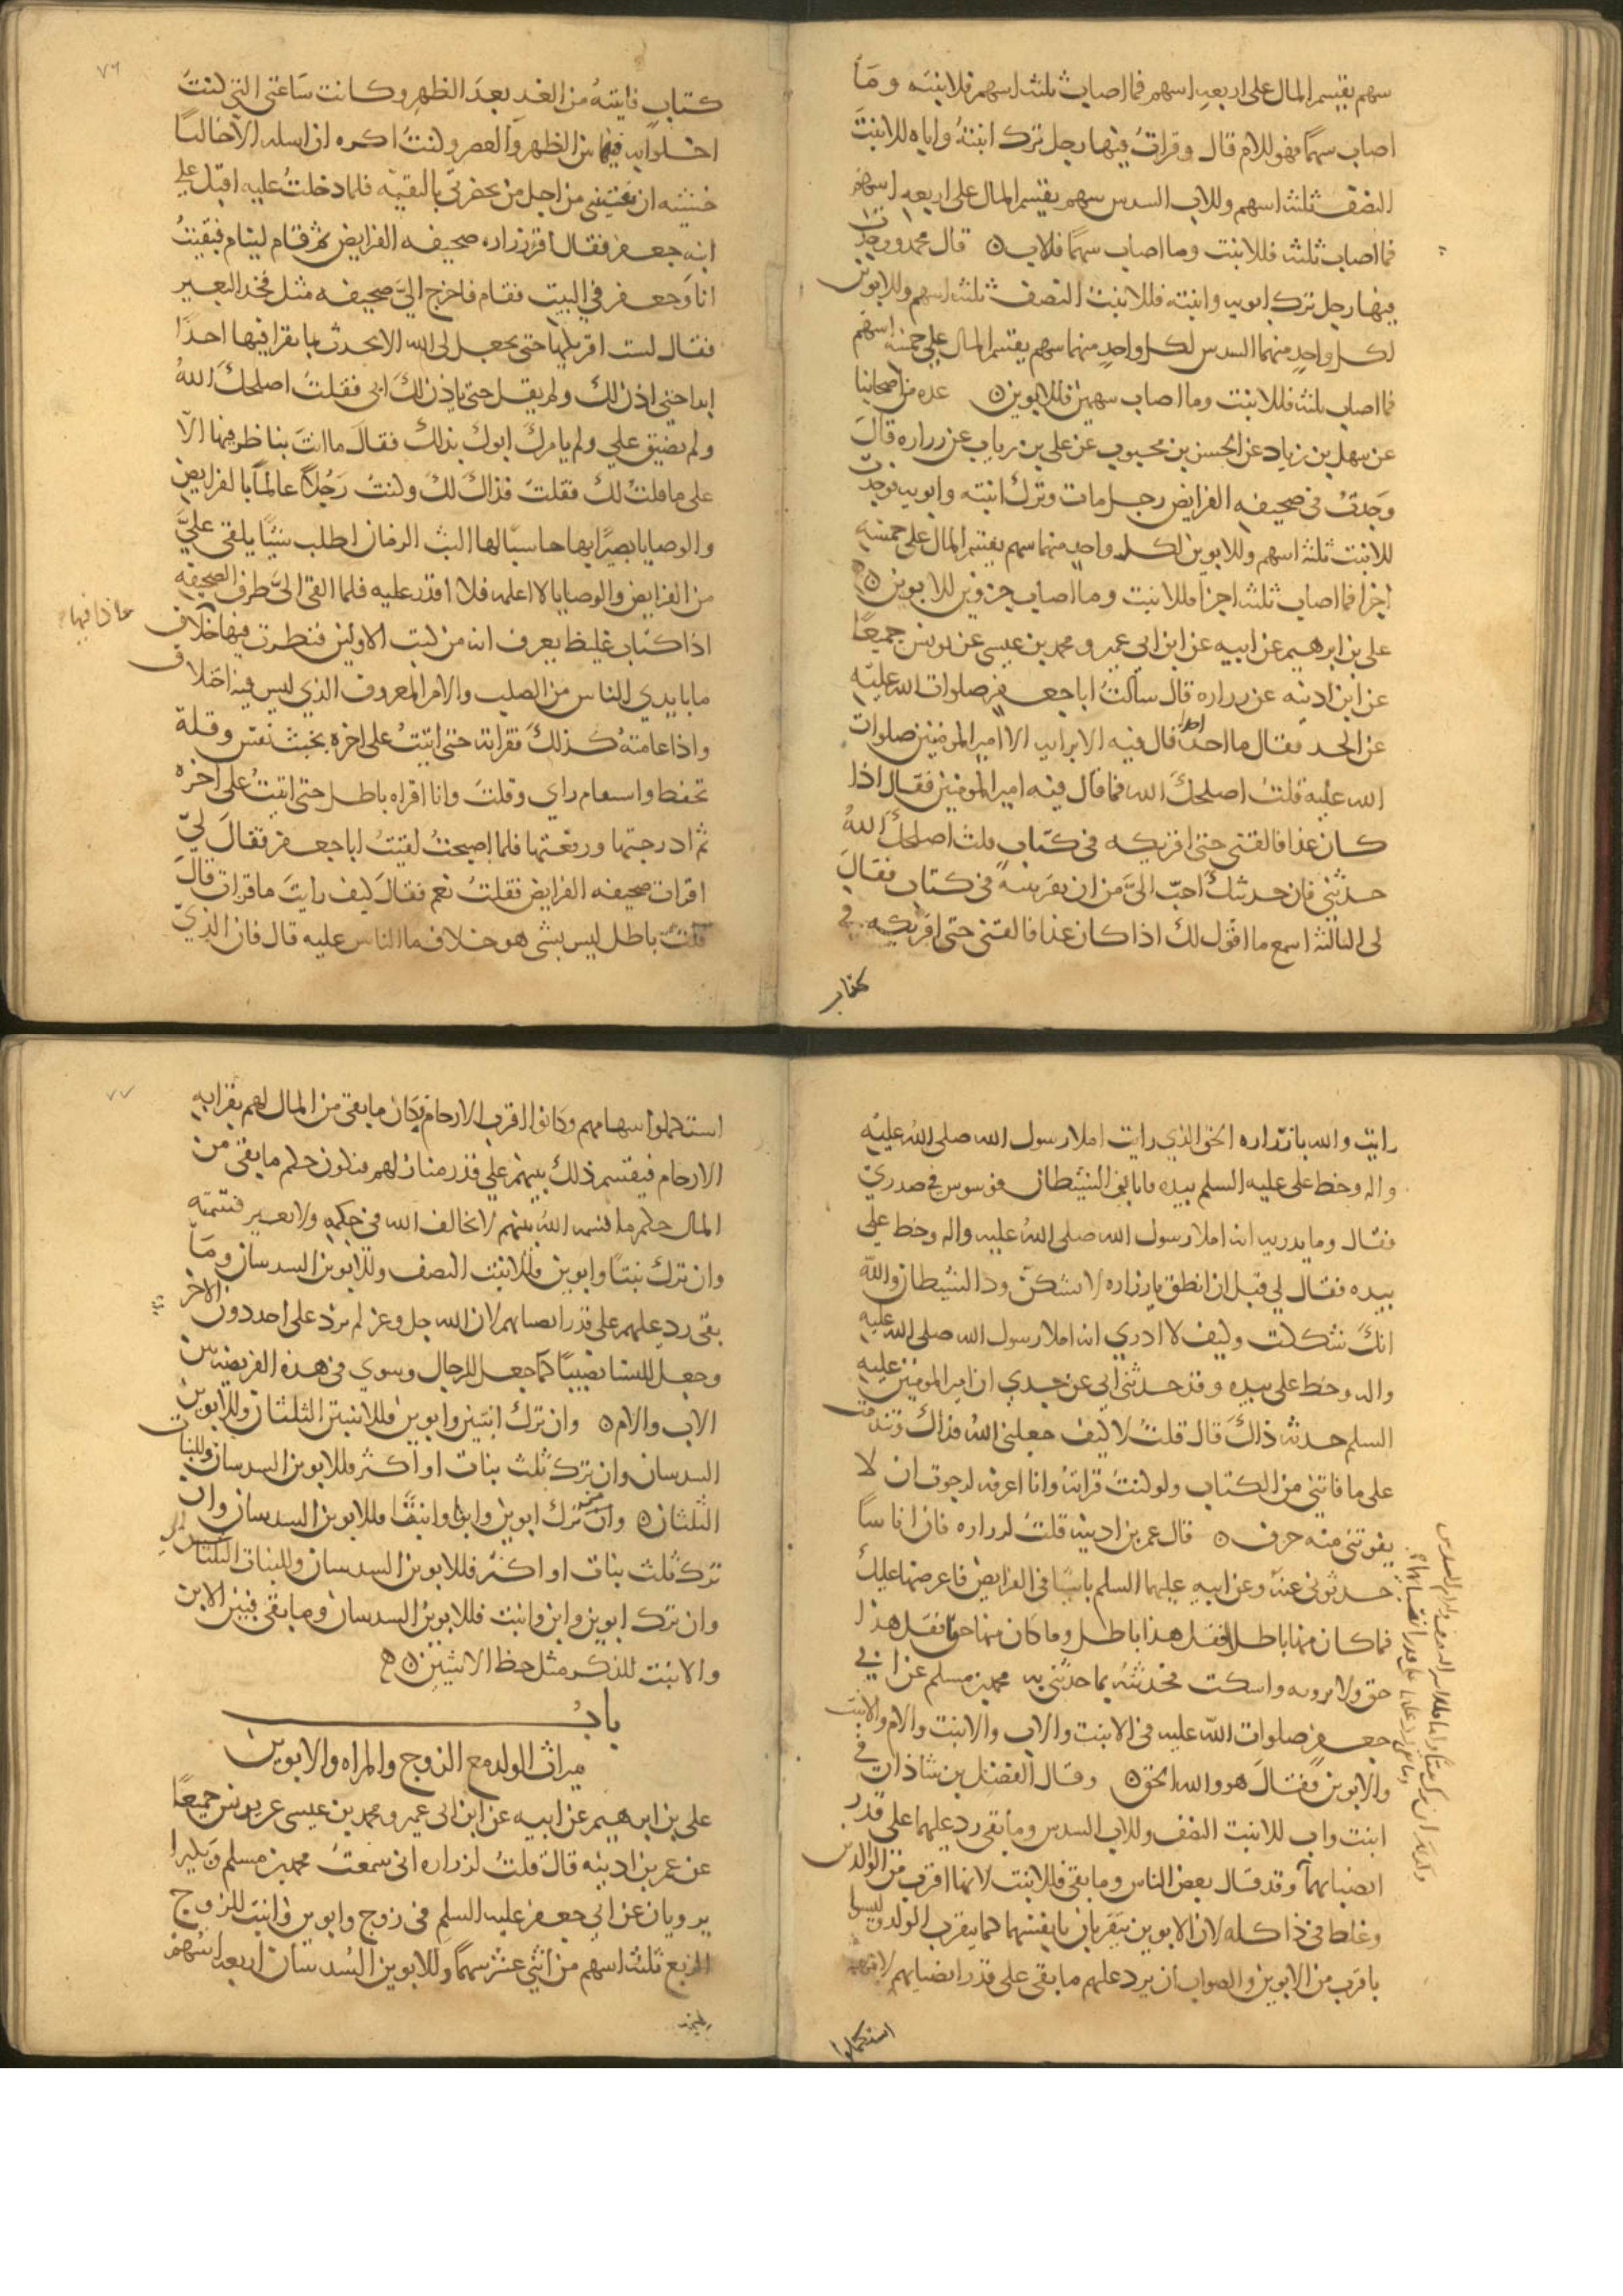 سهم يقسم المال على اربعه اسهم فما اصاب ثلثه اسهم فلابنته وما
اصاب سهمًا فهو للام قال وقرات فيها رجل ترك ابنته واباه للابنت
النصف ثلثه اسهم وللاب السدس سهم يقسم المال على اربعه اسهم
فما اصاب ثلثه فللابنت وما اصاب سهمًا فلاب ه قال محمد ووجدت
فيها رجل ترك ابويه وابنته فللابنت النصف ثلثه اسهم وللابوين
لكل واحد منهما السدس لكل واحد منهما سهم يقسم المال على خمسه اسهم
فما اصاب ثلثه فللابنت وما اصاب سهمين فللابوين ه عده من اصحابنا
عن سهل بن زياد عن الحسن بن محبوب عن علي بن رياب عن زراره قال
وجدت في صحيفه الفرايض رجل مات وترك ابنته وابويه فوجدت
للابنت ثلثه اسهم وللابوين لكل واحد منهما سهم يقسم المال على خمسه
اجزا فما اصاب ثلثه اجزا فللابنت وما اصاب جزوين للابوين ه
علي بن ابرهيم عن ابيه عن ابن ابي عمير ومحمد بن عيسى عن يونس جميعًا
عن ابن اذينه عن زراره قال سألت ابا جعفر صلوات الله عليه
عن الجد فقال ما احدًا قال فيه الا برايه الا امير المومنين صلوات
الله عليه قلت اصلحك الله فما قال فيه امير المومنين فقال اذا
كان غدا فالقني حتى اقريكه في كتاب قلت اصلحك الله
حدثني فان حديثك احب الي من ان تقرينيه في كتاب فقال
لي الثالثه اسمع ما اقول لك اذا كان غدا فالقني حتى اقريكه في
كتاب
٧٦
كتاب فاتيته من الغد بعد الظهر وكانت ساعتي التي كنت
اخلوا به فيها بين الظهر والعصر وكنت اكره ان اسله الا خاليًا
خشيه ان يفتيني من اجل من يحضرني بالتقيه فلما دخلت عليه اقبل علي
ابنه جعفر فقال اقر زراره صحيفه الفرايض ثم قام لينام فبقيت
انا وجعفر في البيت فقام فاخرج الي صحيفه مثل فخذ البعير
فقال لست اقريكها حتى تجعل لي الله الا تحدث بما تقرا فيها احدًا
ابدا حتى اذن لك ولم يقل حتى ياذن لك ابي فقلت اصلحك الله
ولم تضيق علي ولم يامرك ابوك بذلك فقال ما انت بناظر فيها الا
على ما قلت لك فقلت فذاك لك وكنت رجلًا عالمًا بالفرايض
والوصايا بصيرًا بها حاسبًا لها البث الزمان اطلب شيًا يلقى علي
من الفرايض والوصايا لا اعلمه فلا اقدر عليه فلما القى الي طرف الصحيفه
اذا كتاب غليظ يعرف انه من كتب الاولين فنظرت فيها خلاف
فاذا فيها
ما بايدي الناس من الصلب والامر المعروف الذي ليس فيه اختلاف
واذا عامته كذلك فقراته حتى اتيت على اخره بخبث نفس وقلة
تحفظ واسقام راي وقلت وانا اقراه باطل حتى اتيت على اخره
ثم ادرجتها ورفعتها فلما اصبحت لقيت ابا جعفر فقال لي
اقرات صحيفه الفرايض فقلت نعم فقال كيف رايت ما قرات قال
قلت باطل ليس بشي هو خلاف ما الناس عليه قال فان الذي
رايت والله يا زراره الحق الذي رايت املا رسول الله صلى الله عليه
واله وخط علي عليه السلم بيده فاتاني الشيطان فوسوس في صدري
فقال وما يدريه انه املا رسول الله صلى الله عليه واله وخط علي
بيده فقال لي قبل ان انطق يا زراره لا تشكن ود الشيطان والله
انك شككت وكيف لا ادري انه املا رسول الله صلى الله عليه
واله وخط علي بيده وقد حدثني ابي عن جدي ان امير المومنين عليه
السلم حدثه ذاك قال قلت لا كيف جعلني الله فداك وتندمت
على ما فاتني من الكتاب ولو كنت قراته وانا اعرفه لرجوت ان لا
يفوتني منه حرف ه قال عمر بن اذينه قلت لزراره فان اناسًا
حدثوني عنه وعن ابيه عليهما السلم باشيا في الفرايض فاعرضها عليك
فما كان منها باطلا فقل هذا باطل وما كان منها حقًا فقل هذا
حق ولا تروه واسكت فحدثته بما حدثني به محمد بن مسلم عن ابي
جعفر صلوات الله عليه في الابنت والاب والابنت والام والابنت
والابوين فقال هو والله الحق ه وقال الفضل بن شاذان في
ابنت واب للابنت النصف وللاب السدس وما بقي رد عليهما على قدر
انصبايهما وقد قال بعض الناس وما بقي فللابنت لانها اقرب من الوالدين
وغلط في ذا كله لان الابوين يتقربان بانفسهما كما يتقرب الولد وليسا
باقرب من الابوين والصواب ان يرد عليهم ما بقي على قدر انصبايهم لانهم
استكملوا
٧٧
استكملوا سهامهم وكانوا اقرب الارحام فكان ما بقي من المال لهم بقرابه
الارحام فيقتسم ذلك بينهم على قدر منازلهم فيكون حكم ما بقي من
المال حكم ما قسمه الله بينهم لا يخالف الله في حكمه ولا يغير قسمته
وان ترك بنتًا وابوين فللابنت النصف وللابوين السدسان وما
بقي رد عليهم على قدر انصبايهم لان الله جل وعز لم يرد على احد دون الاخر
وجعل للنسا نصيبًا كما جعل للرجال وسوي في هذه الفريضه بين
الاب والام ه وان ترك ابنتين وابوين فللابنتين الثلثان وللابوين
السدسان وان ترك ثلث بنات او اكثر فللابوين السدسان وللبنات
الثلثان ه وان ترك ابوين وابنا وابنتًا فللابوين السدسان وان
ترك ثلث بنات او اكثر فللابوين السدسان وللبنات الثلثان
وان ترك ابوين وابن وابنت فللابوين السدسان وما بقي فبين الابن
والابنت للذكر مثل حظ الانثيين ه
باب
ميراث الولد مع الزوج والمراه والابوين
علي بن ابرهيم عن ابيه عن ابن ابي عمير ومحمد بن عيسى عن يونس جميعًا
عن عمر بن اذينه قال قلت لزراره اني سمعت محمد بن مسلم وبكيرا
يرويان عن ابي جعفر عليه السلم في زوج وابوين وابنت للزوج
الربع ثلثه اسهم من اثني عشر سهمًا وللابوين السدسان اربعه اسهم